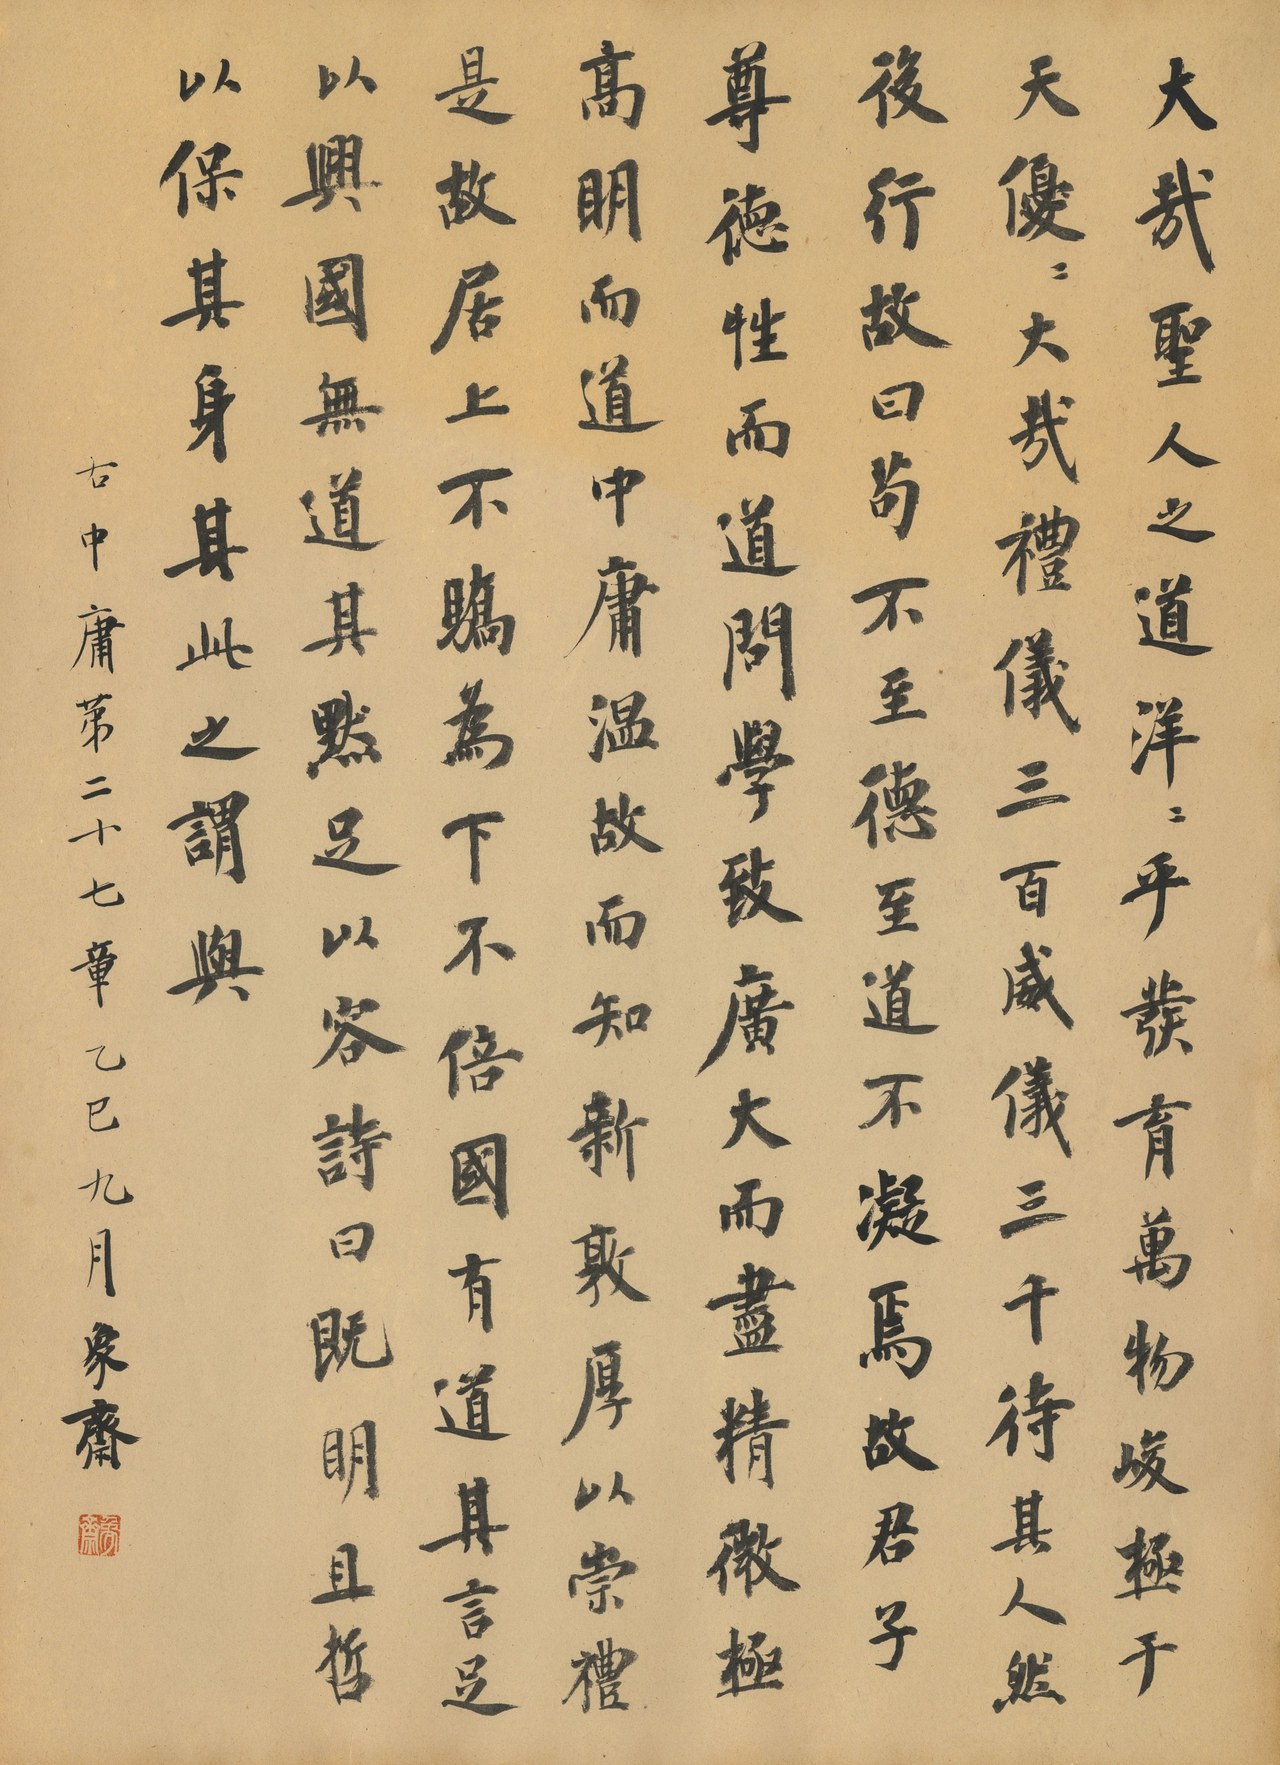 大哉聖人之道洋〻乎發育萬物峻極于
天優〻大哉禮儀三百威儀三千待其人然
後行故曰苟不至德至道不凝焉故君子
尊德性而道問學致廣大而盡精微極
高明而道中庸温故而知新敦厚以崇禮
是故居上不驕為下不倍國有道其言足
以興國無道其默足以容詩曰既明且哲
以保其身其此之謂與
右中庸第二十七章乙巳九月象齋
象齋